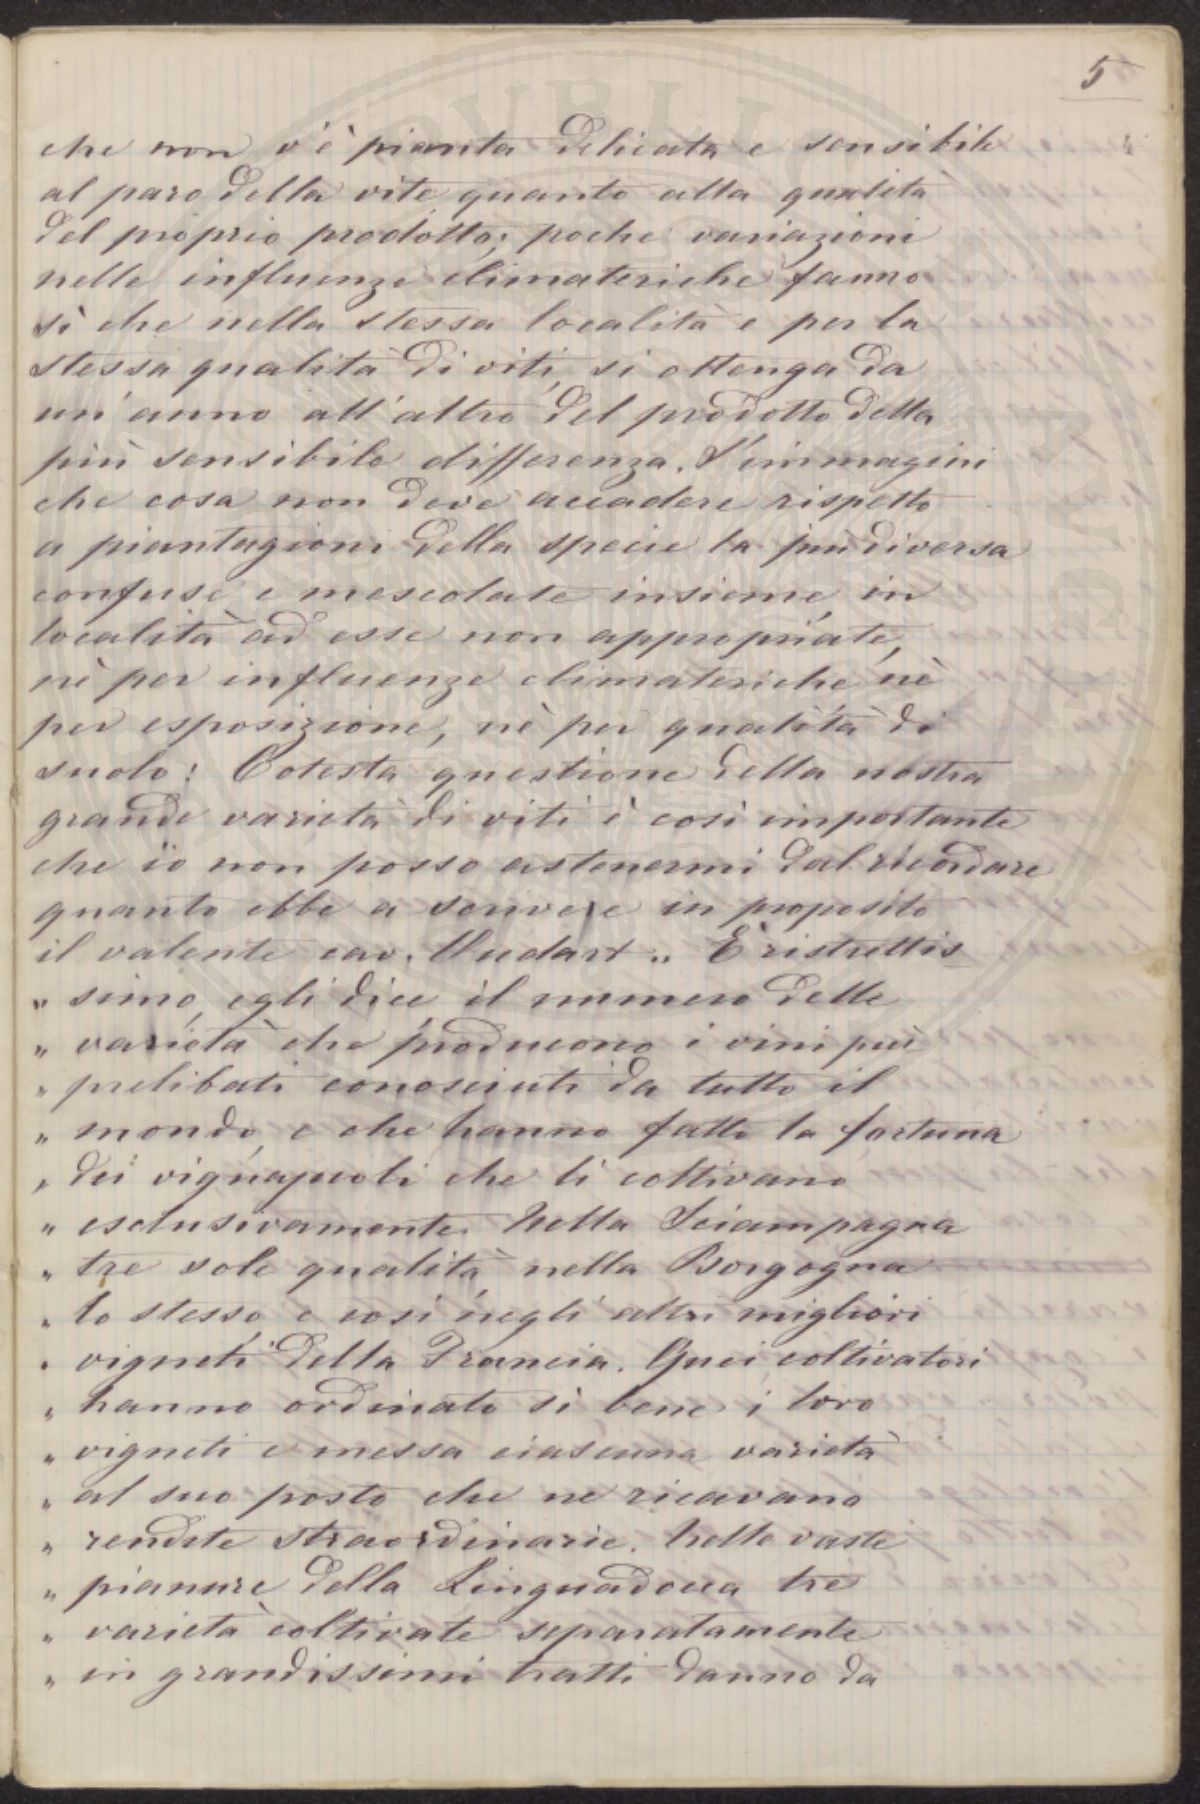 5
che non v'è pianta delicata e sensibile
al paro della vite quanto alla qualità
del proprio prodotto; poche variazioni
nelle influenze climateriche fanno
sì che nella stessa località e per la
stessa qualità di viti, si ottenga da
un'anno all'altro del prodotto della
più sensibile differenza. S'immagini
che cosa non deve accadere rispetto
a piantagioni della specie la più diversa
confuse e mescolate insieme, in
località ad esse non appropriate,
nè per influenze climateriche, nè
per esposizione, nè per qualità di
suolo! Cotesta questione della nostra
grande varietà di viti è così importante
che io non posso astenermi dal ricordare
quanto ebbe a scrivere in proposito
il valente cav. Oudart „ È ristrettis
„ simo, egli dice, il numero delle
„ varietà che producono i vini più
„ prelibati conosciuti da tutto il
„ mondo, e che hanno fatto la fortuna
„ dei vignajuoli che li coltivano
„ esclusivamente. Nella Sciampagna
„ tre sole qualità, nella Borgogna
„ lo stesso, e così negli altri migliori
„ vigneti della Francia. Quei coltivatori
„ hanno ordinato sì bene i loro
„ vigneti e messa ciascuna varietà
„ al suo posto che ne ricavano
„ rendite straordinarie. Nelle vaste
„ pianure della Linguadoca tre
„ varietà coltivate separatamente
„ in grandissimi tratti danno da